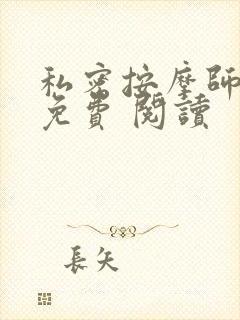 私密按摩師
免費 閱讀
長矢